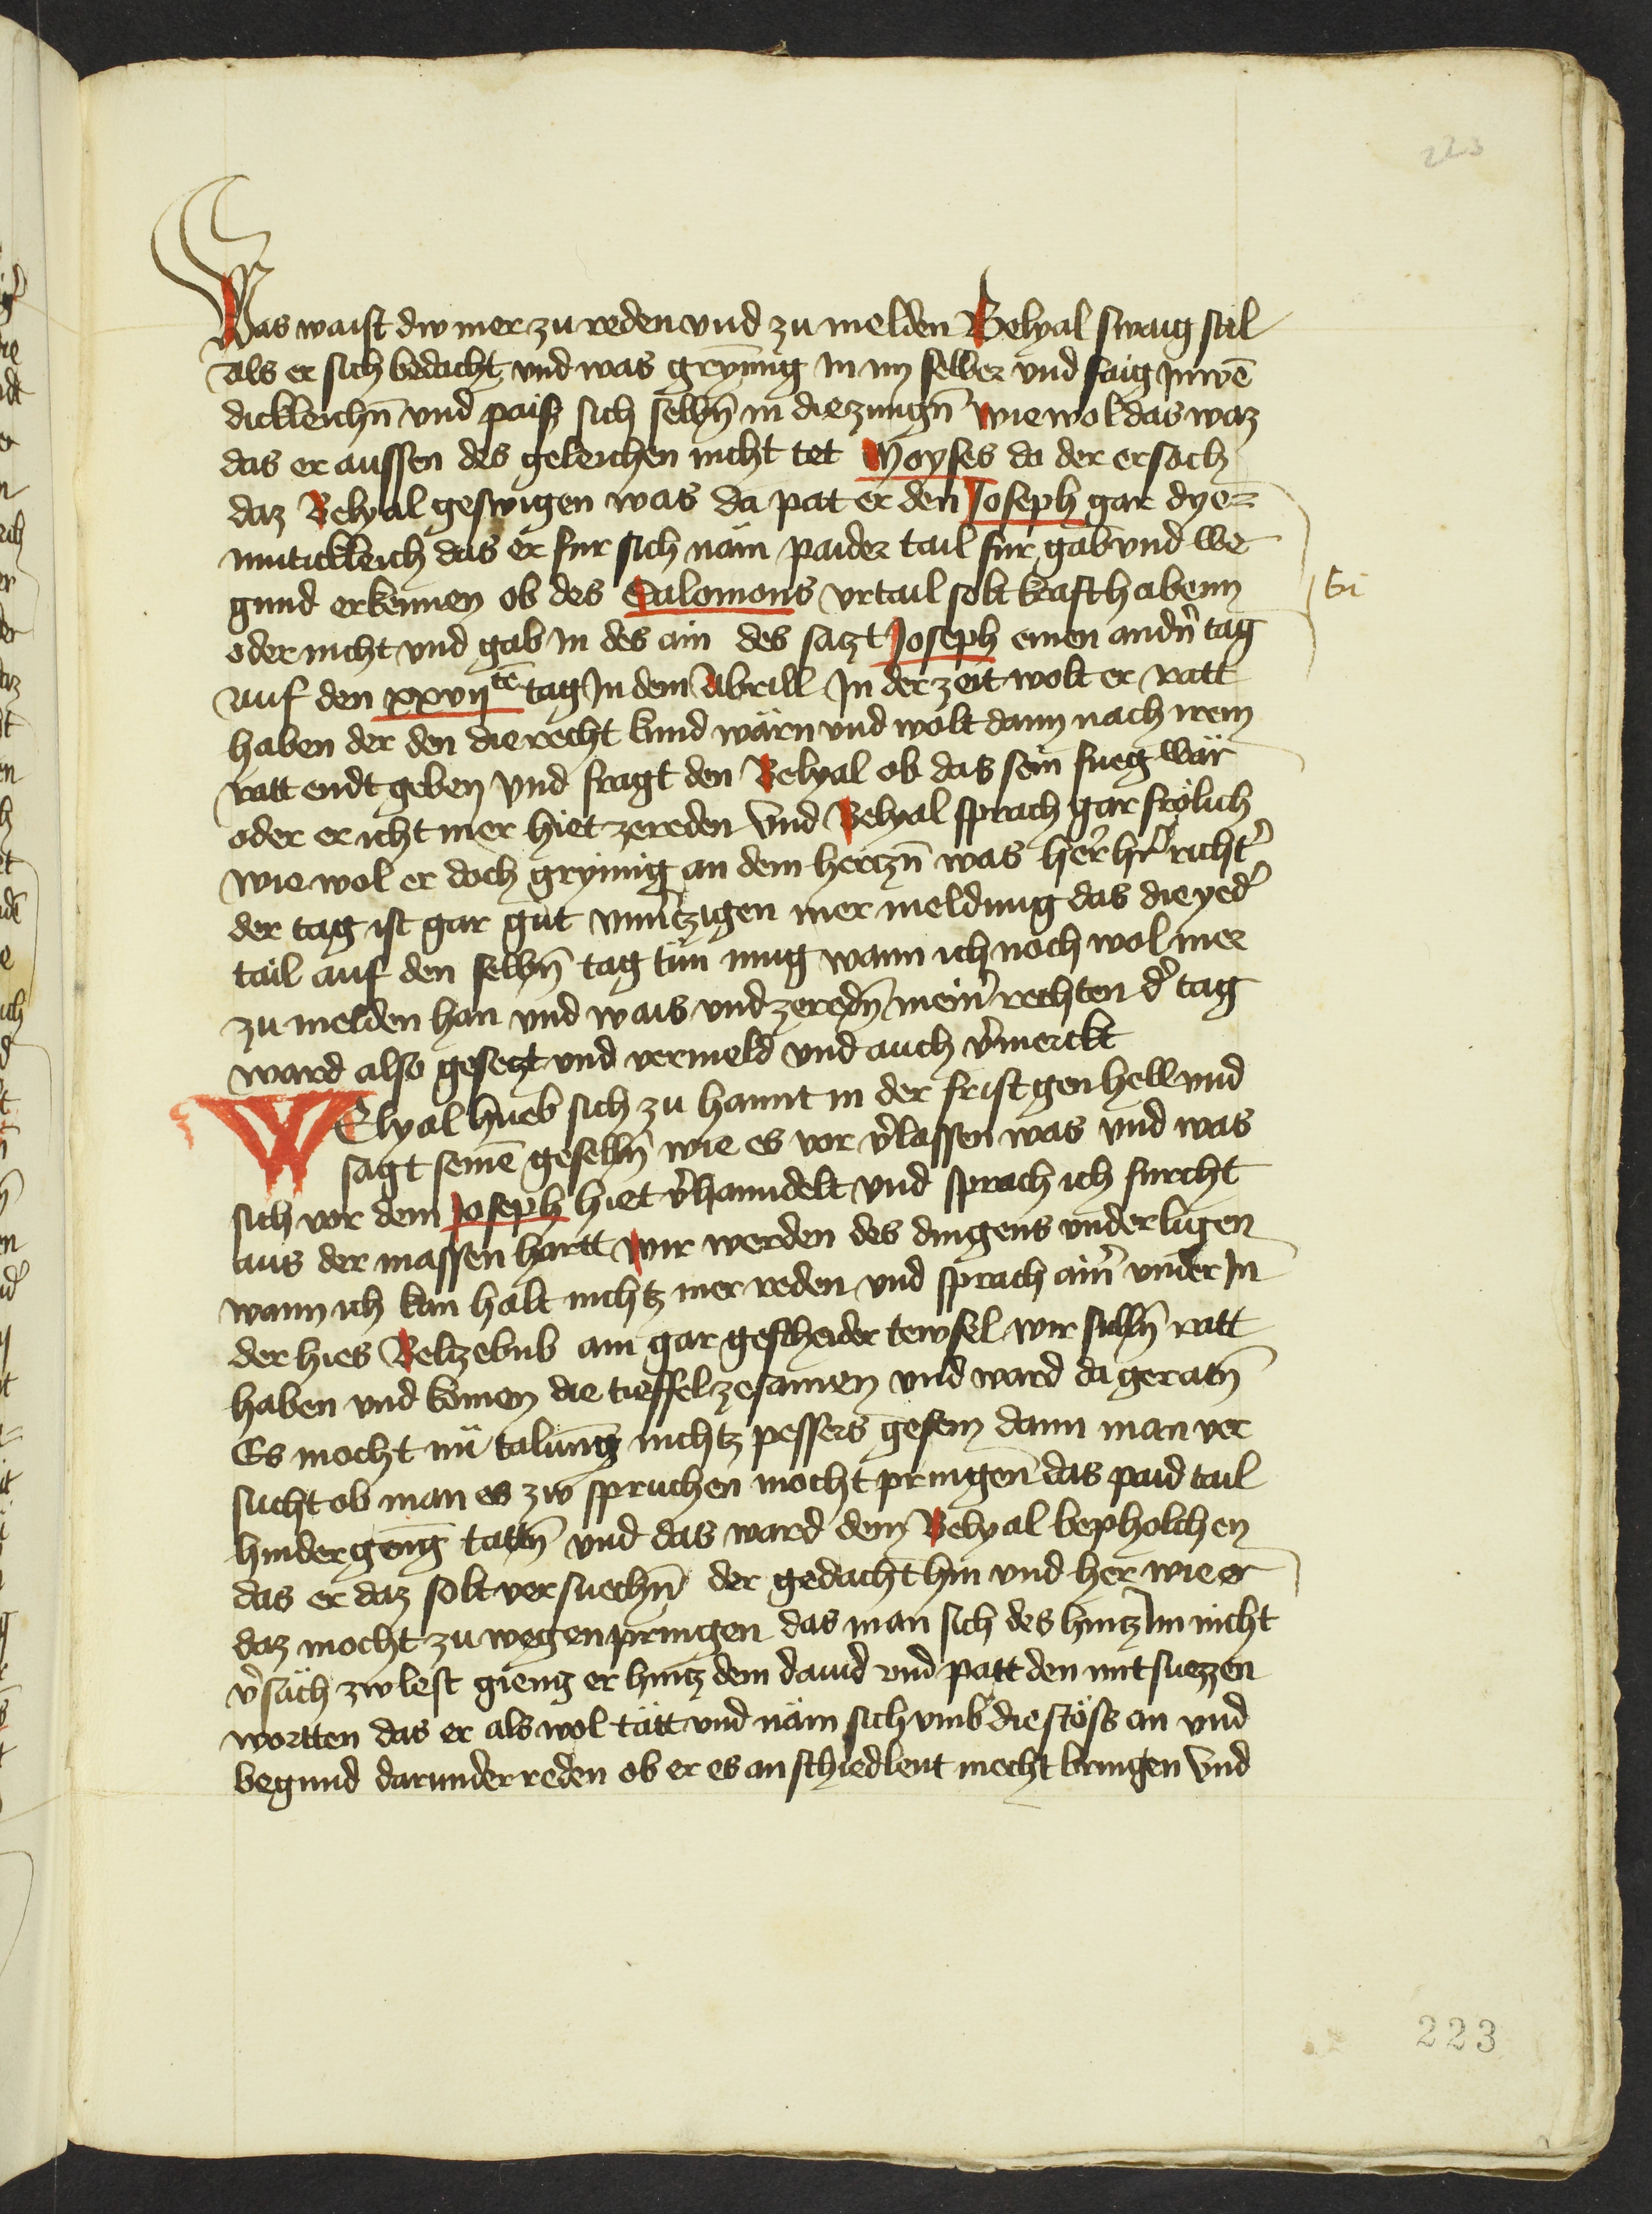 223
Was waist dw mer zu reden vnd zu melden Belyal swaig stil
als er sich bedacht vnd was grymig in im selber vnd saig Inwē
dickleichn̄ vnd paiss sich selbn̄ in die zungn̄ wie wol das waz
das er aussen des geleichen nicht tet Moyses do der ersach
daz Belyal geswigen was da pat er den Joseph gar dye=
muticklich das er fur sich näm paider tail fur gab vnd we
gund erkennen ob des Salomons vrtail solt krafft habenn
oder nicht vnd gab In des ain des sazt Joseph einen andn̄ tag
auf den xxvijtē tag In dem Abrill In der zeit wolt er ratt
haben der den die recht kund wärn vnd wolt dann nach irem
ratt endt geben vnd fragt den Belyal ob das sein fueg wär
oder er icht mer hiet ze reden vnd Belyal sprach gar frölich
wie wol er doch grymig an dem hertzn̄ was her her richt'
der tag ist gar gut vnuerzigen mer meldung das die yed'
tail auf den selbn̄ tag tün mug wann ich noch wol mer
zu melden han vnd wais vnd ze redn̄ mein' rechten d' tag
ward also gesetzt vnd vermeld vnd auch v'merckt
WElyal hueb sich zu hannt in der frist gen hell vnd
sagt seinē geselln̄ wie es vor v'lassen was vnd was
sich vor dem Joseph hiet v'hanndelt vnd sprach ich furcht
aus der massen hartt wir werden des dingens vnderligen
wann ich kan halt nichtz mer reden vnd sprach ain' vnder In
der hies Beltzebub ain gar gescheider tewfel wir sulln̄ ratt
haben vnd komen die tieffel zesamen vnd ward da geratn̄
Es mocht nü talung nichtz pessers gesein dann man ver
sucht ob man es zw spruchen mocht pringen das paid tail
hindergeng tattn̄ vnd das ward dem Belyal bepholchen
das er daz solt versuechn̄ der gedacht hin vnd her wie er
daz mocht zu wegen pringen das man sich des hintz Im nicht
v'säch zwlest gieng er hintz dem dauid vnd patt den mit suezzen
wortten das er als wol tätt vnd näm sich vmb die stöss an vnd
begund darunder reden ob er es an schiedleut mecht bringen vnd
223